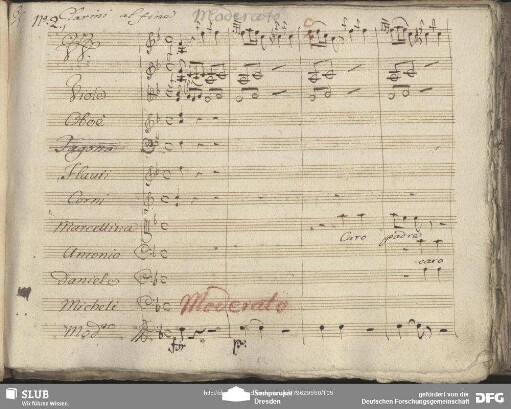 No. 2. Clarini al fine Moderato
VV.
Viole
Oboè
Fagotti
Flauti
Corni
Marcellina
Caro padre
Antonio
caro
Daniele
Micheli
Moderato
Mod.to
for p.
SLUB
Wir führen Wissen.
Dresden
gefördert von der
Deutschen Forschungsgemeinschaft
DFG